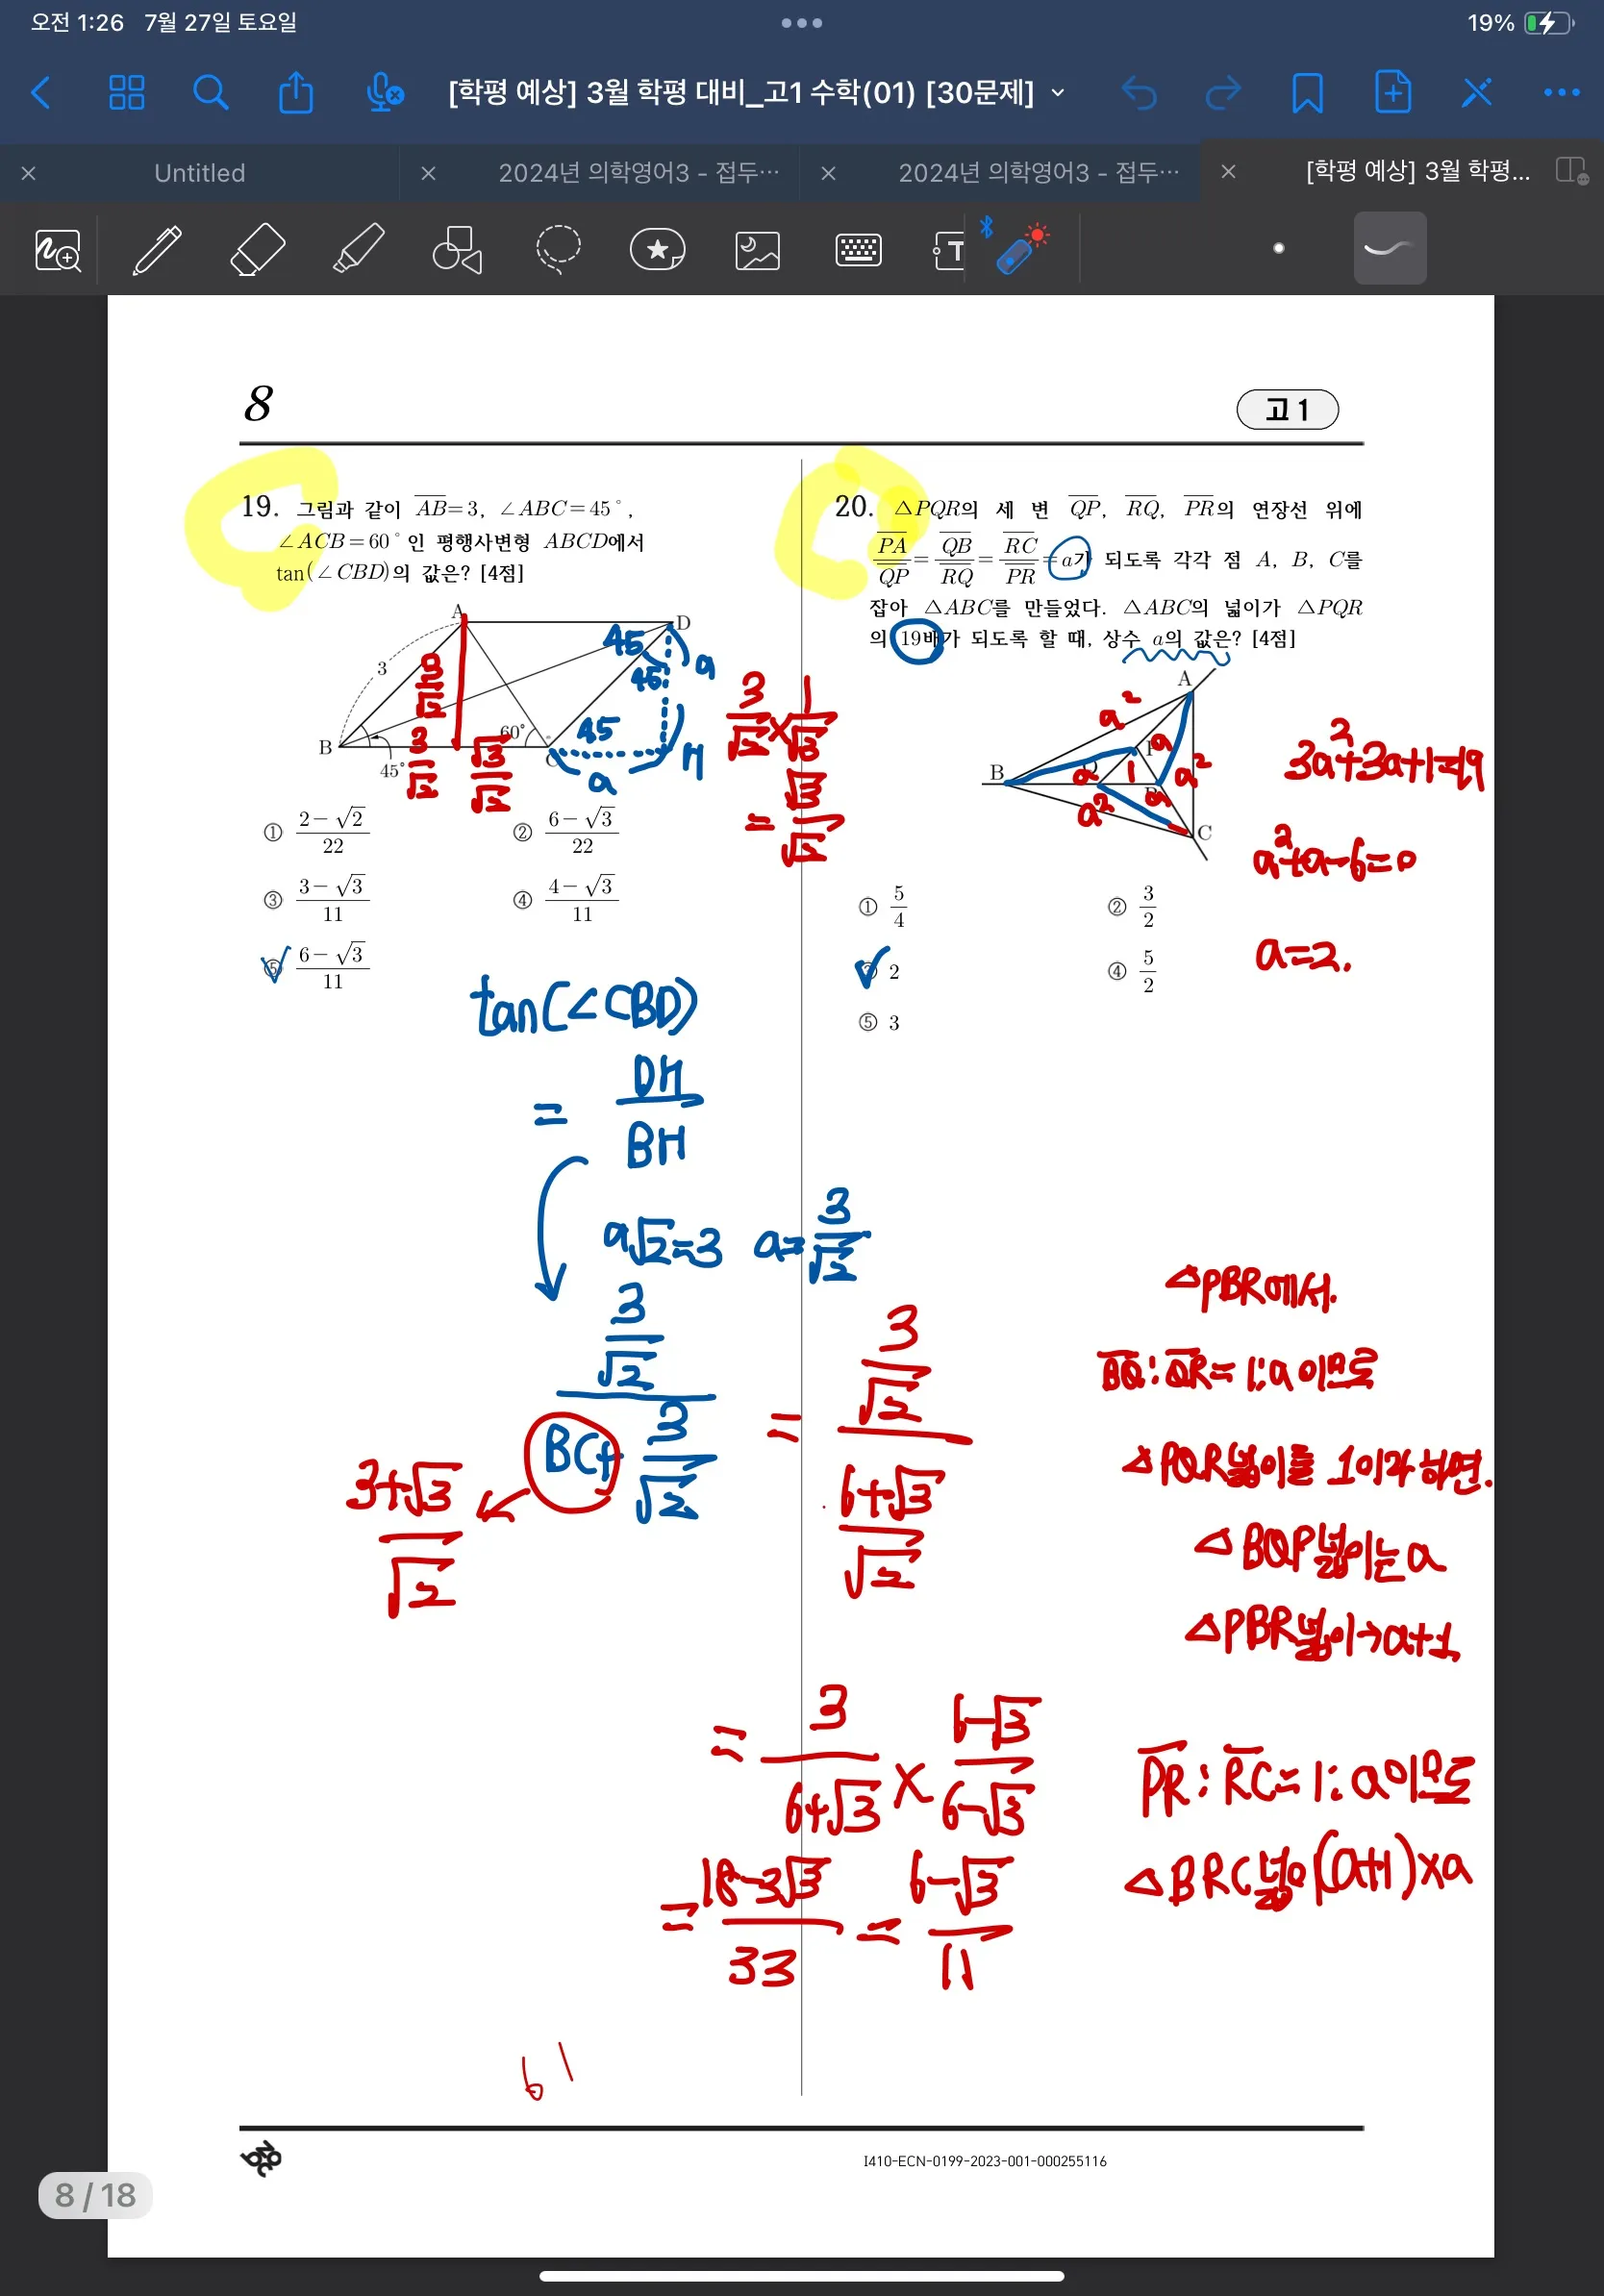 오전 1:26 7월 27일 토요일
19%
[학평 예상] 3월 학평 대비_고1 수학(01) [30문제]
Untitled
2024년 의학영어3 - 접두…
2024년 의학영어3 - 접두…
[학평 예상] 3월 학평...
8
고 1
19. 그림과 같이 AB=3, ∠ABC=45°,
∠ACB=60°인 평행사변형 ABCD에서
tan(∠CBD)의 값은? [4점]
A
D
3
B
45°
60°
C
45
45
45
a
a
H
3/√2
3/√2
√3/√2
3/√2 × 1/√3
= √3/√2
① (2-√2)/22
② (6-√3)/22
③ (3-√3)/11
④ (4-√3)/11
⑤ (6-√3)/11
tan(∠CBD)
= DH/BH
a√2=3 a=3/√2
(3/√2)/(BC+3/√2)
(3+√3)/√2
= (3/√2)/((6+√3)/√2)
= 3/(6+√3) × (6-√3)/(6-√3)
= (18-3√3)/33 = (6-√3)/11
61
20. △PQR의 세 변 QP, RQ, PR의 연장선 위에
PA/QP = QB/RQ = RC/PR = a가 되도록 각각 점 A, B, C를
잡아 △ABC를 만들었다. △ABC의 넓이가 △PQR
의 19배가 되도록 할 때, 상수 a의 값은? [4점]
A
B
P
Q
R
C
a²
a
a
1
a²
a
a²
3a²+3a+1=19
a²+a-6=0
a=2.
① 5/4
② 3/2
③ 2
④ 5/2
⑤ 3
△PBR에서.
BQ:QR=1:a이므로
△PQR넓이를 1이라 하면.
△BQP넓이는a
△PBR넓이→a+1
PR:RC=1:a이므로
△BRC넓이(a+1)×a
I410-ECN-0199-2023-001-000255116
8 / 18